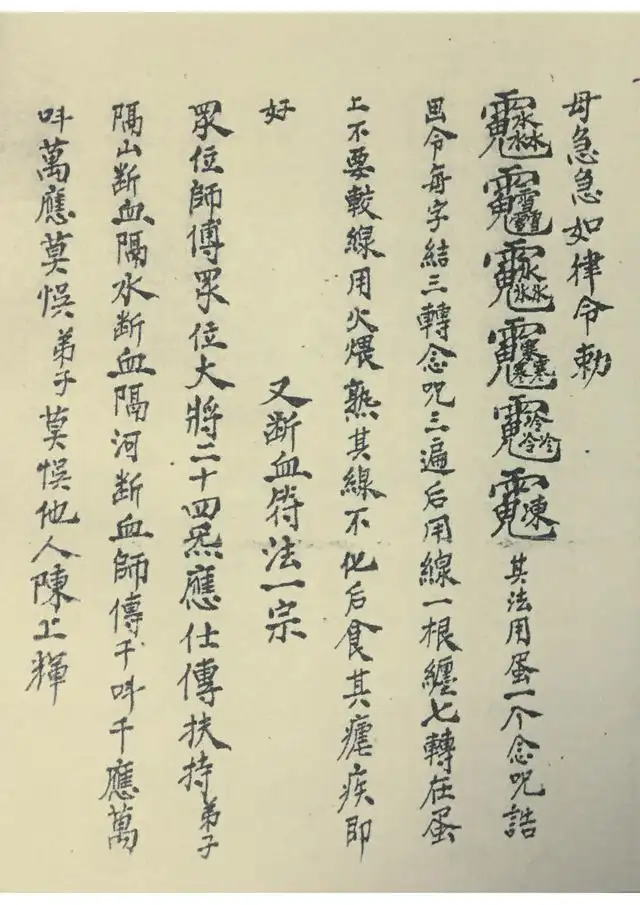 母急急如律令勅
其法用蛋一个念呪誥
令每字結三轉念呪三遍后用線一根纏七轉在蛋
上不要較線用火煨熟其線不化后食其瘧疾即
好
又断血符法一宗
眾位師傅眾位大將二十四炁應仕傅扶持弟子
隔山断血隔水断血隔河断血師傅千呌千應萬
呌萬應莫悞弟子莫悞他人陳上輝